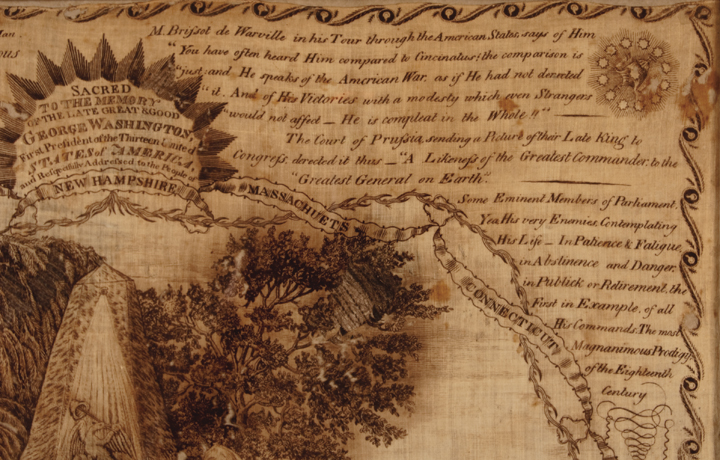 lan.
ous
SACRED
TO THE MEMORY
OF THE LATE GREAT & GOOD
GEORGE WASHINGTON,
First President of the Thirteen United
STATES of AMERICA,
and Respectfully Addressed to the People of
NEW HAMPSHIRE
MASSACHUETS
CONNECTICUT
M. Brissot de Warville in his Tour through the American States, says of Him
"You have often heard Him compared to Cincinatus; the comparison is
"just: and He speaks of the American War, as if He had not derected
"it. And of His Victories with a modesty which even Strangers
"would not affect — He is compleat in the Whole !!"
The Court of Prussia, sending a Picture of their Late King to
Congress, derected it thus — "A Likeness of the Greatest Commander, to the
"Greatest General on Earth"
Some Eminent Members of Parliament,
Yea His very Enemies, Contemplating
His Life — In Patience & Fatigue,
in Abstinence and Danger,
in Publick or Retirement, the
First in Example, of all
His Commands, The most
Magnanimous Prodigy
of the Eighteenth
Century